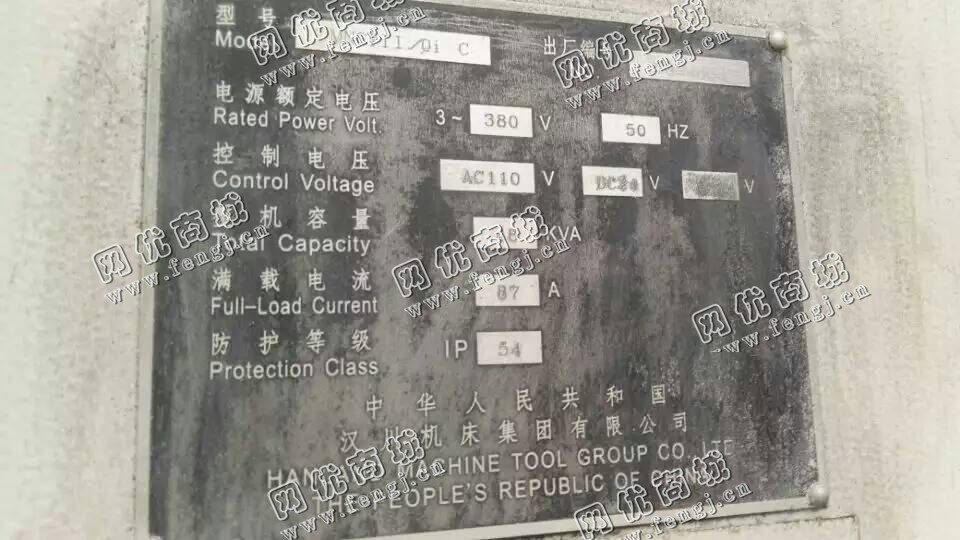 型号
Model
出厂编号
电源额定电压
Rated Power Volt.
3~ 380 V 50 HZ
控制电压
Control Voltage
AC110 V DC24 V V
机容量
Total Capacity
KVA
满载电流
Full-Load Current
87 A
防护等级
Protection Class
IP 54
中华人民共和国
汉川机床集团有限公司
MACHINE TOOL GROUP CO. LTD
THE PEOPLE'S REPUBLIC OF CHINA
网优商城
www.fengj.cn
网优商城
www.fengj.cn
网优商城
www.fengj.cn
网优商城
www.fengj.cn
网优商城
www.fengj.cn
网优商城
www.fengj.cn
网优商城
www.fengj.cn